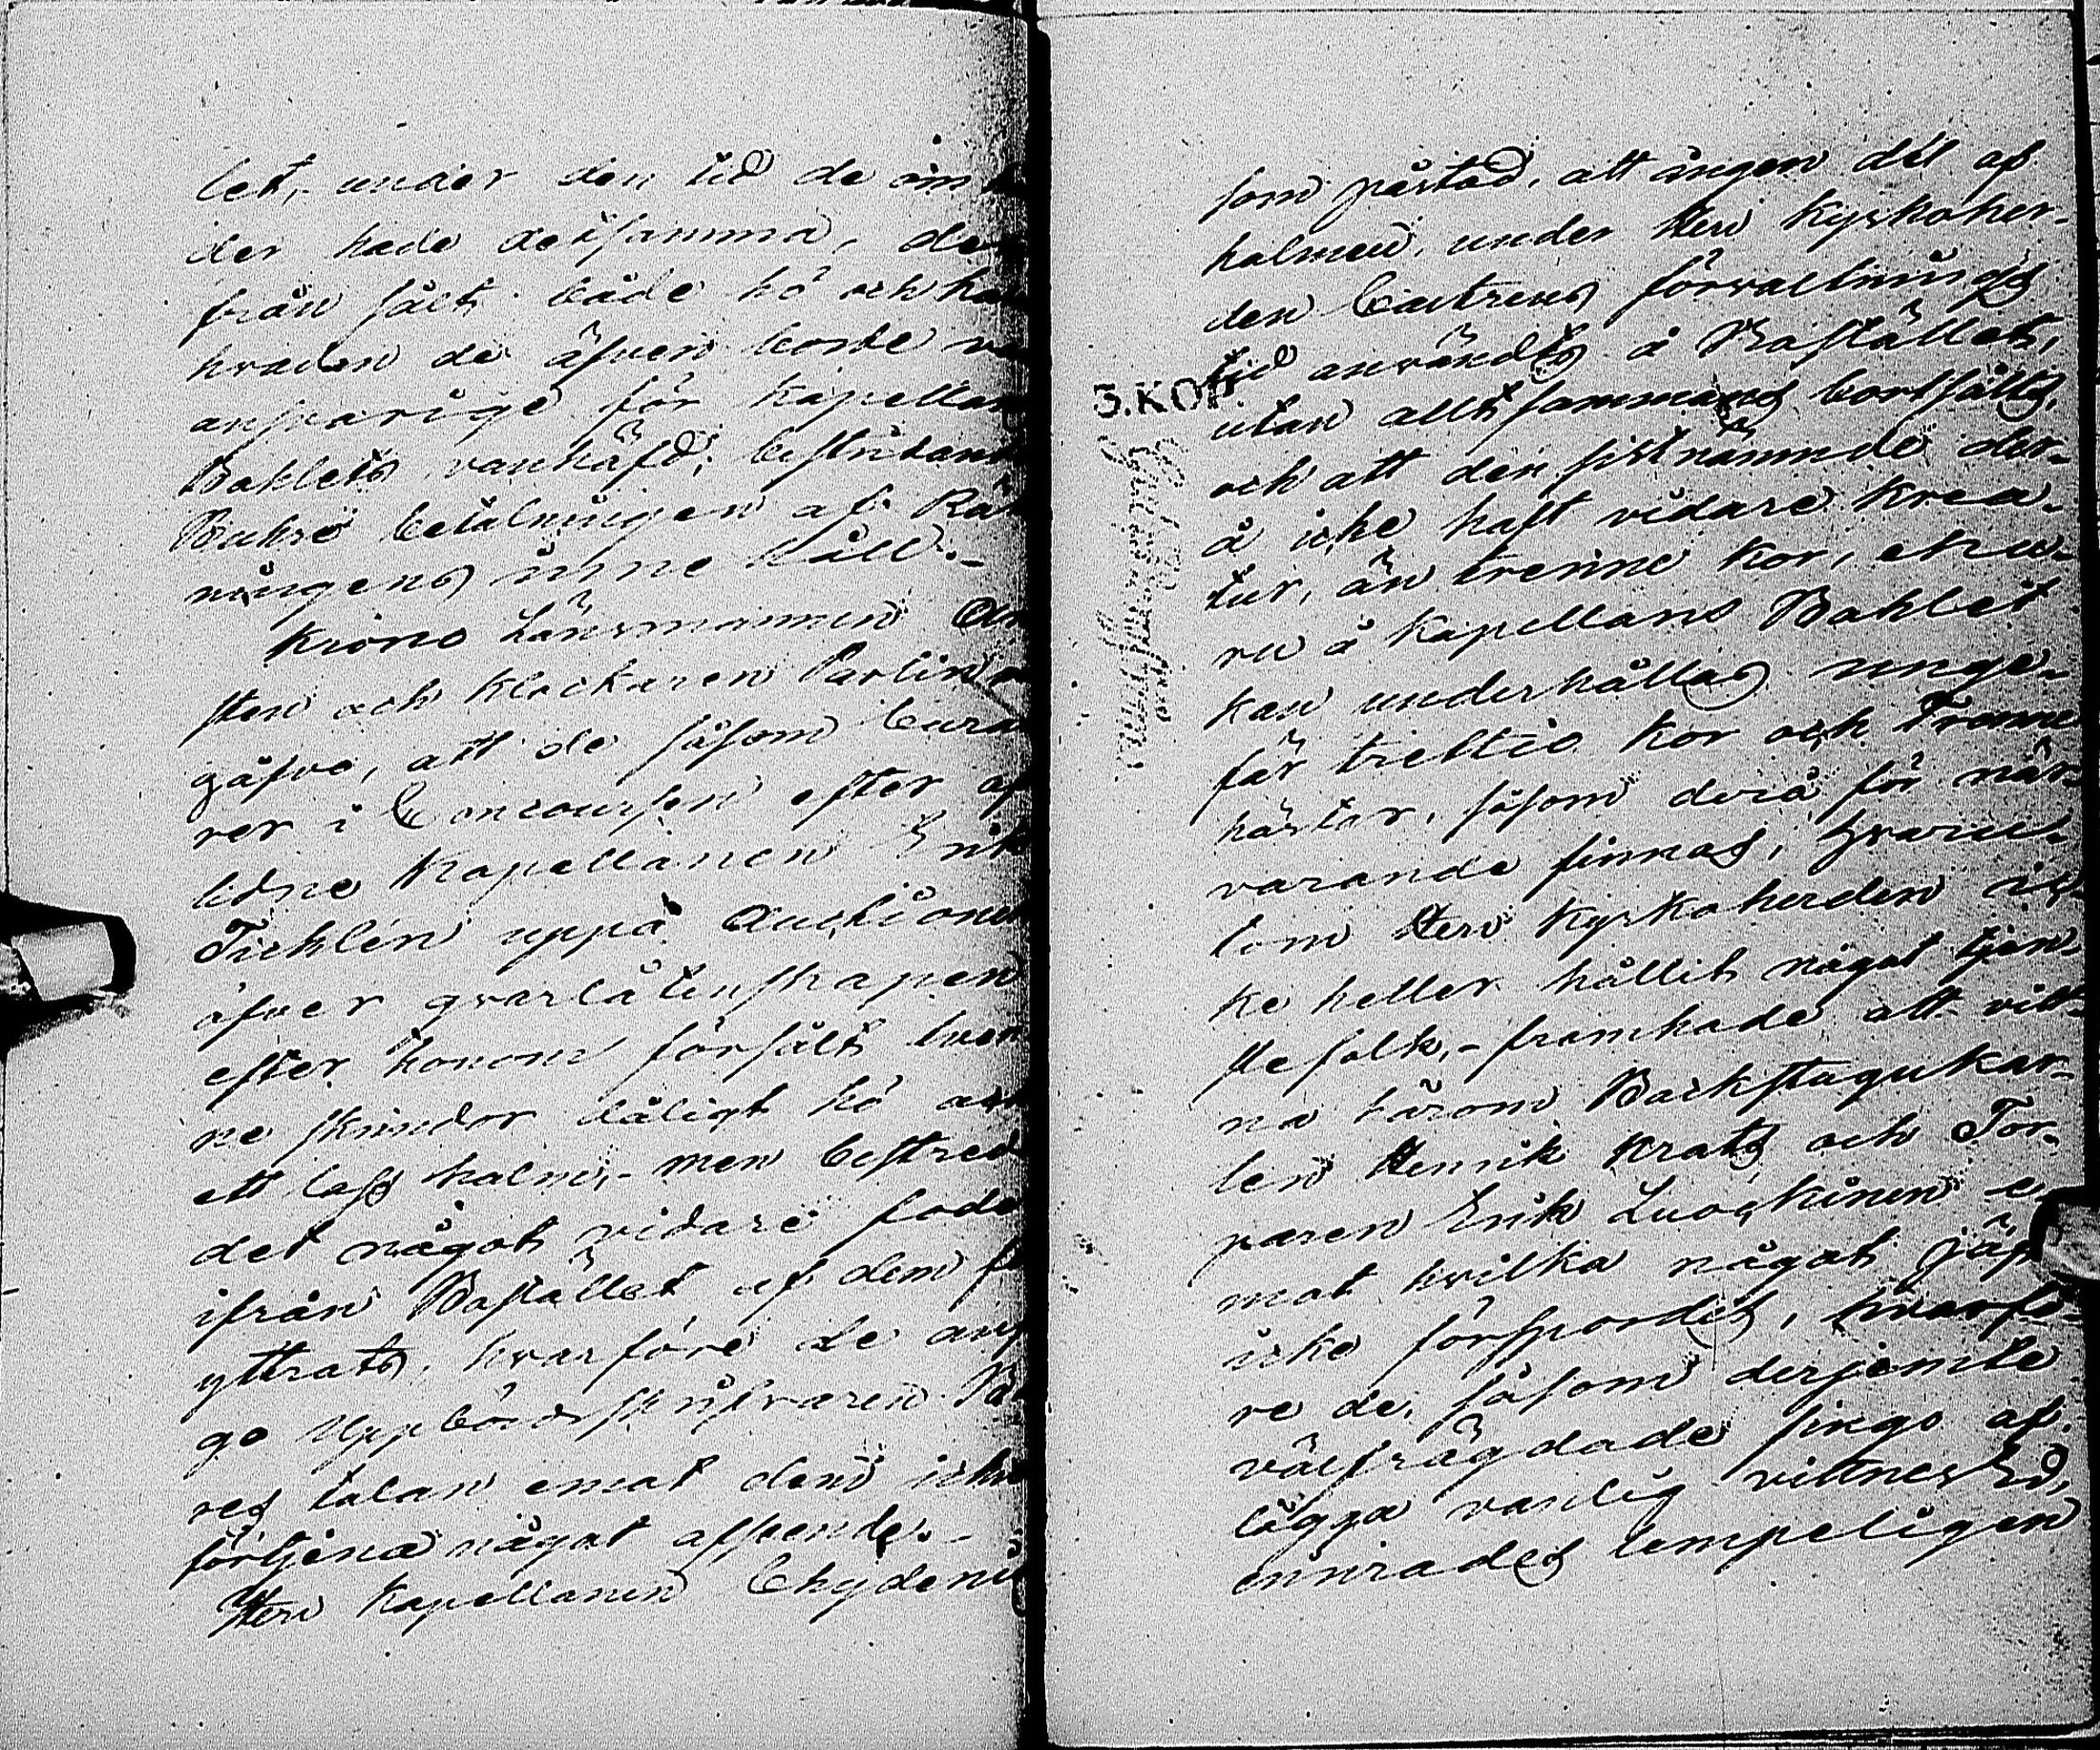 let, under den tid de om
der hade detsamma, der
från sålt både hö och ha
hvadan de äfven borde
ansvarige för Kapellans
Bohlets vanhäfd; bestridand
Buhre betalningen af Räk
ningens inne håll.-
Krono Länsmannen
sten och Klockaren Parlin
gåfvo, att de såsom Cura
rer i Concoursen efter af
lidne Kapellanen Erik
Tichlén uppå Auctionen
öfver qvarlåtenskapen
efter honom försålt tven
ne skrindor dåligt hö och
ett lass halm,- men bestred
det något vidare fode
ifrån Bostället af dem f
yttrats, hvarföre de
go Uppbördsskrifvaren
res talan emot dem icke
förtjena något afseende.-
Herr Kapellanen Chydeni
som påstod, att ingen del af
halmen, under Herr Kyrkoher-
den Castrens förvaltnings
tid användts å Bostället,
3.KOP.
utan alltsammans bortsålts,
och att den sistnämnde der-
å icke haft vidare Krea-
tur, än trenne Kor, ehu-
ru å Kapellans Bohlet
kan underhållas unge-
fär trettio Kor och Trenne
hästar, såsom derå för när-
varande finnas, hvaru-
tom Herr Kyrkoherden ic-
ke heller hållit något tjen-
stefolk,- framhade att vitt-
na härom Backstugukar-
len Henrik Krats och Tor-
paren Erik Luoskinen e-
mot hvilka något jäf
icke förspordes, hvarfö-
re de, såsom derjemte
välfrägdade fingo af-
lägga vanlig vittnes Ed,
ennrades lempeligen